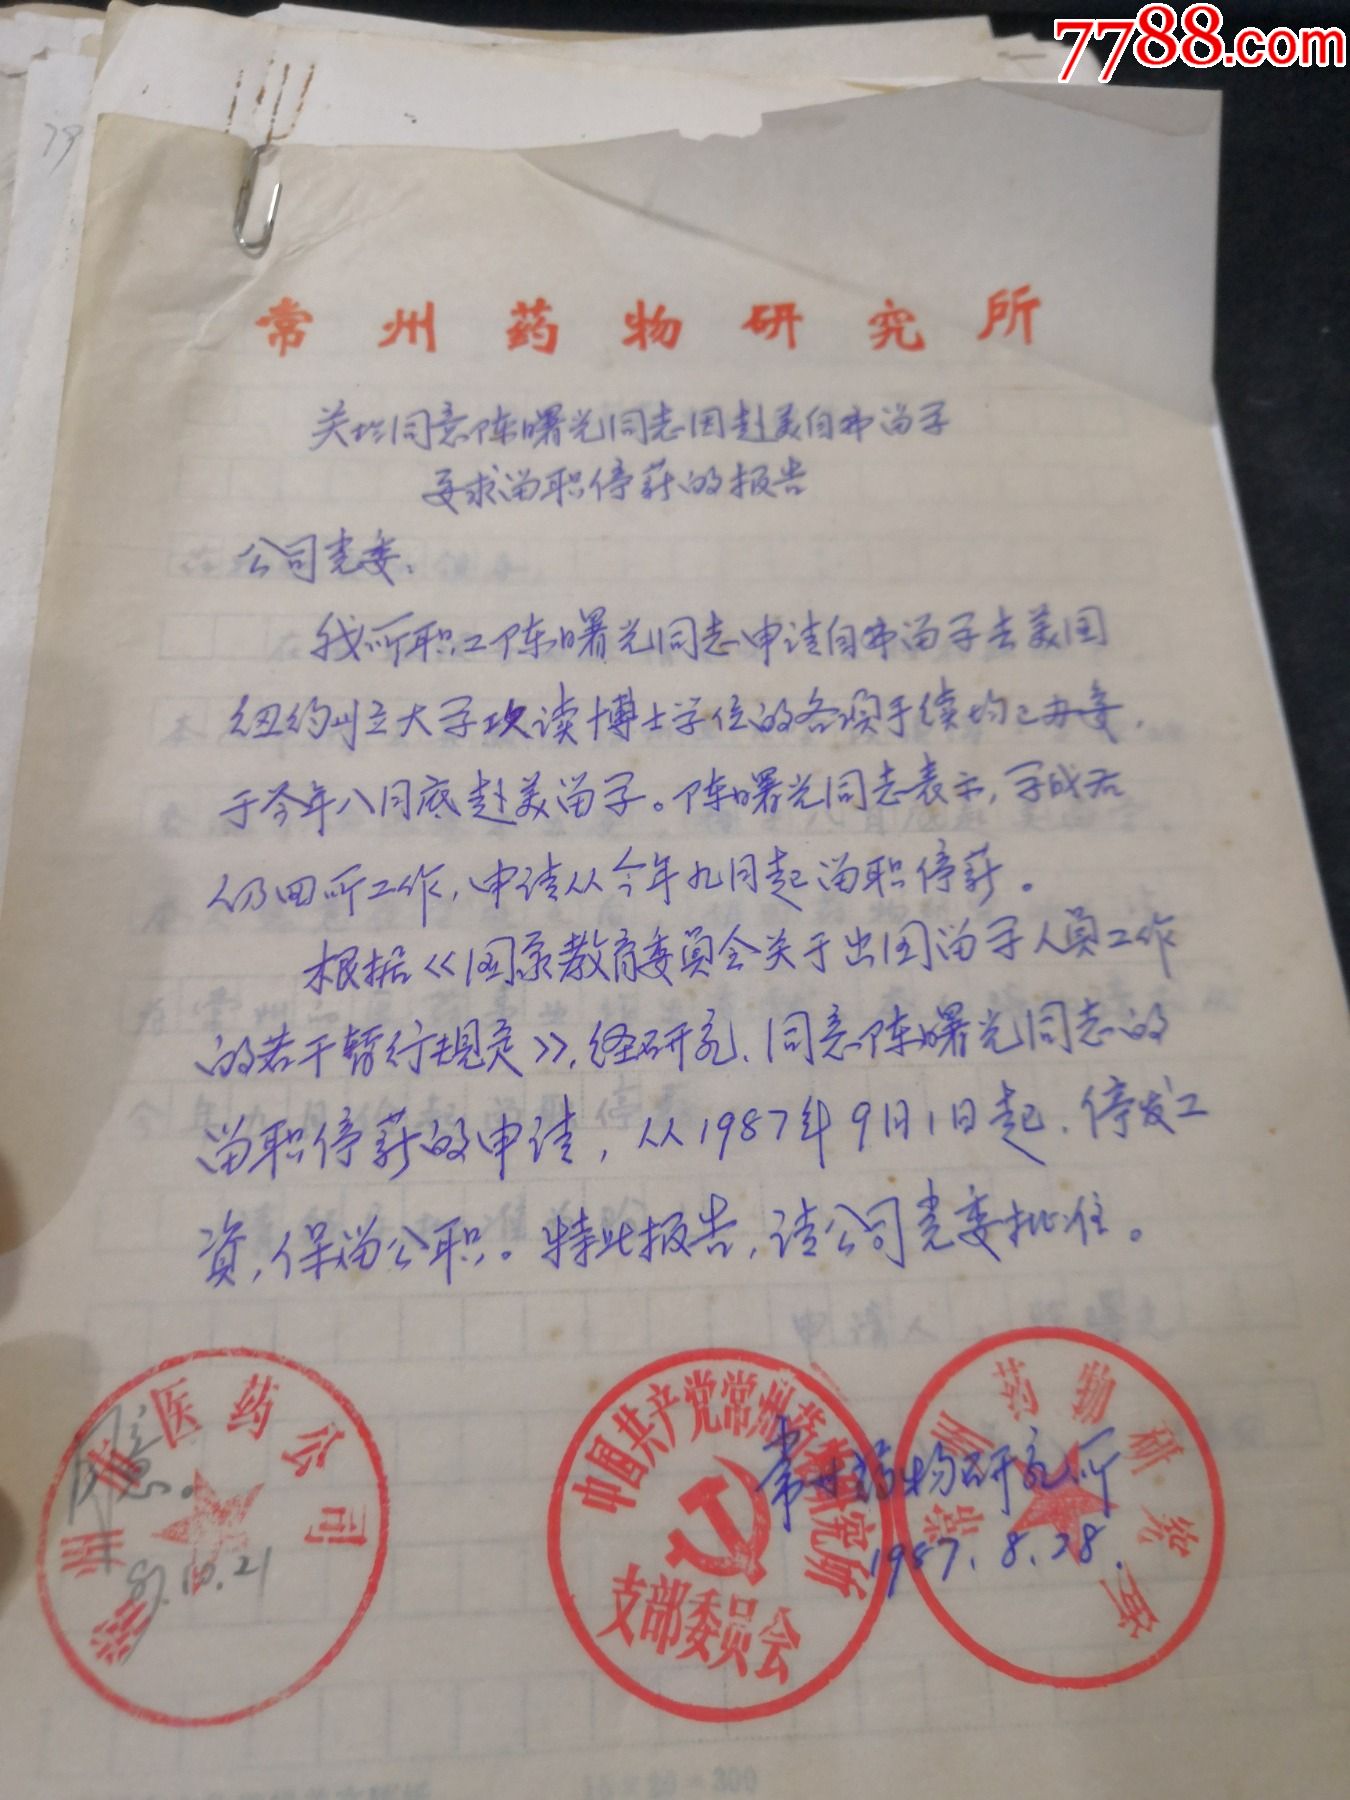 7788.com
79
常州药物研究所
关于同意陈曙光同志因赴美自费留学
要求留职停薪的报告
公司党委:
我所职工陈曙光同志申请自费留学去美国
纽约州立大学攻读博士学位的各项手续均已办妥,
于今年八月底赴美留学。陈曙光同志表示,学成后
仍回所工作,申请从今年九月起留职停薪。
根据《国家教育委员会关于出国留学人员工作
的若干暂行规定》,经研究,同意陈曙光同志的
留职停薪的申请,从1987年9月1日起,停发工
资,保留公职。特此报告,请公司党委批准。
申请人
常州药物研究所
1987.8.28.
同意。
87.10.21
常州市医药公司
中国共产党常州药物研究所
支部委员会
常州药物研究所
15×20=300